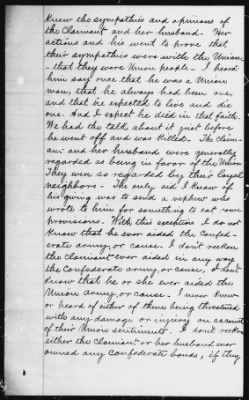 Knew the sympathies and opinions of
the Claimant and her husband. Her
actions and his went to prove that
their sympathies were with the Union
- that they were Union people. I heard
him say once that he was a Union
man, that he always had been one,
and that he expected to live and die
one. And I expect he died in that faith.
We had the talk about it just before
he went off and was killed - The Claim
ant and her husband were generally
regarded as being in favor of the Union
They were so regarded by their loyal
neighbors - The only aid I know of
his giving was to send a nephew who
wrote to him for something to eat some
provisions. With this exception I do not
know that he ever aided the Confed-
erate army, or cause. I don't reckon
the claimant ever aided in any way
the Confederate army, or cause, I don't
know that he or she ever aided the
Union army, or cause. I never knew
or heard of either of them being threatened
with any damage or injury on account
of their Union sentiments. I don't reckon
either the claimant or her husband ever
owned any Confederate bonds, if they